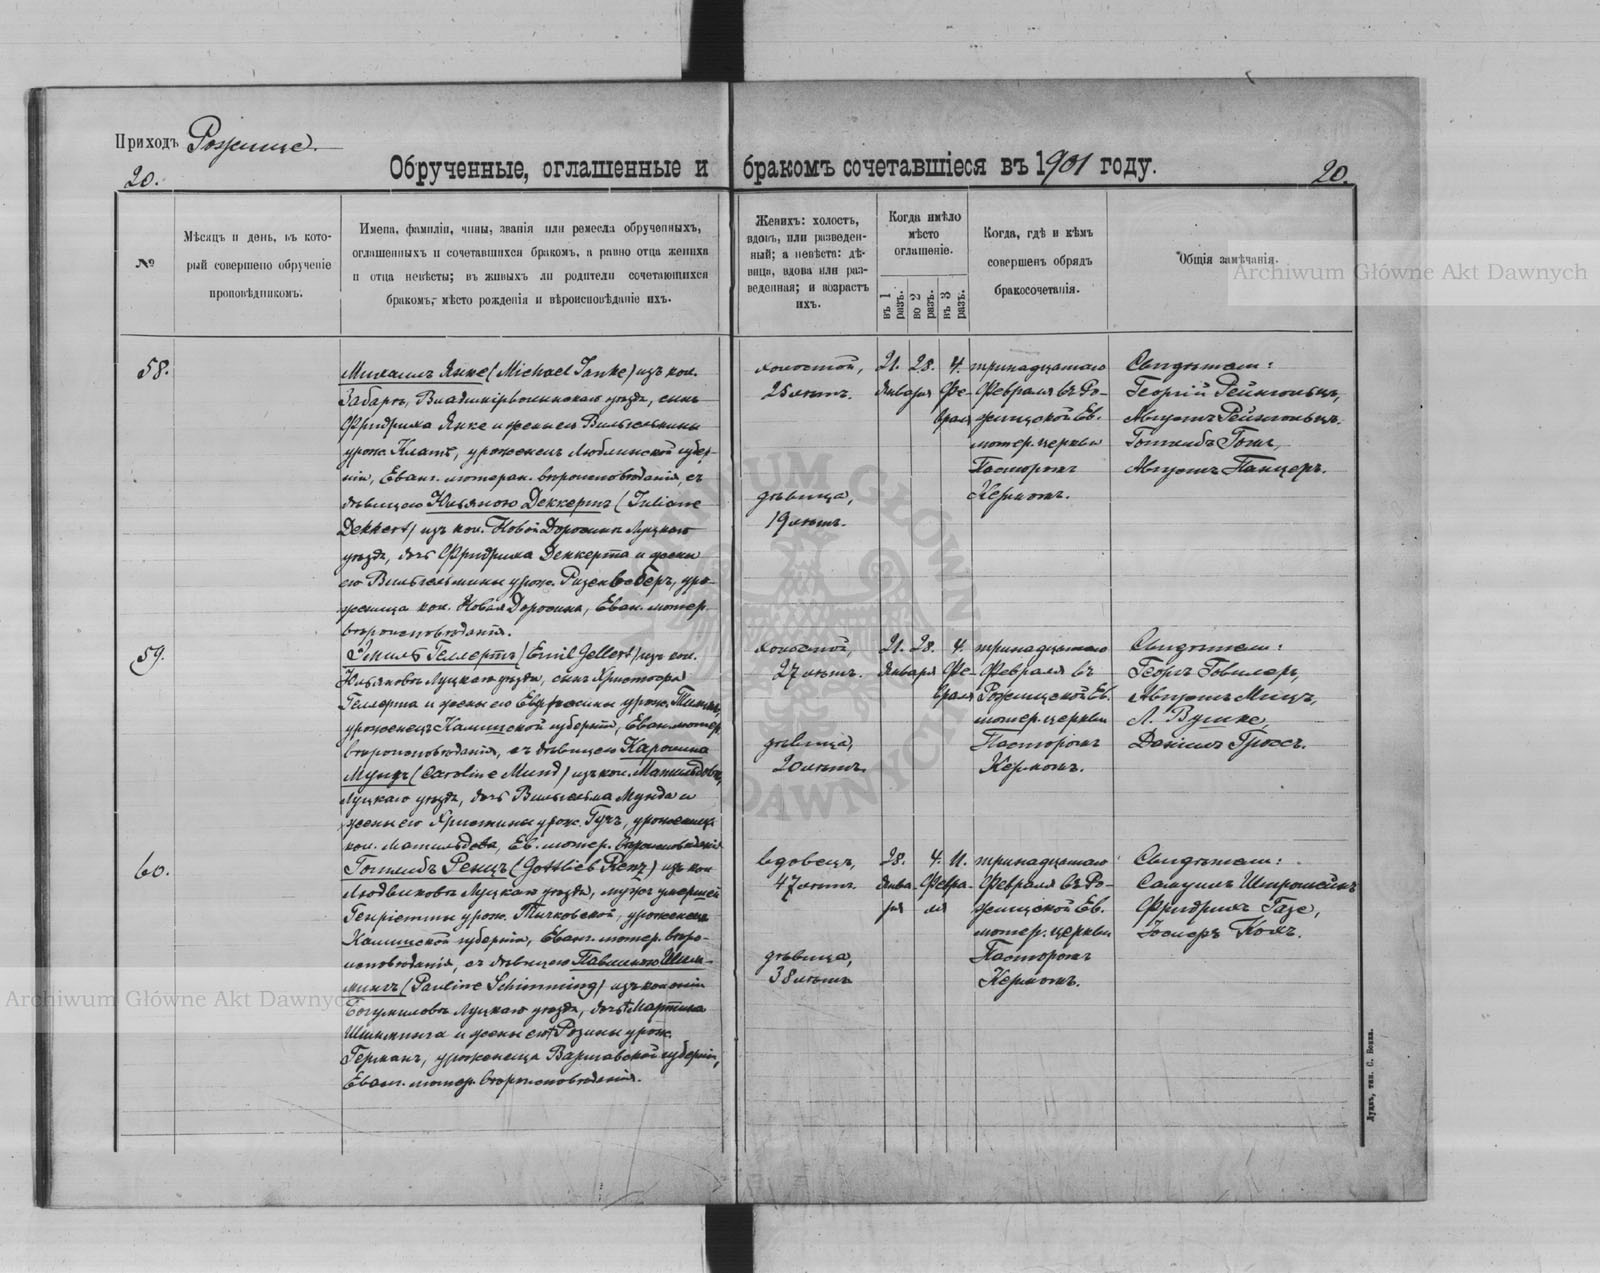 Приходъ Рожище.
20.
Обрученные, оглашенные и бракомъ сочетавшіеся въ 1901 году.
20.
№
Мѣсяцъ и день, въ кото-
рый совершено обрученіе
проповѣдникомъ.
Имена, фамиліи, чины, званія или ремесла обрученныхъ,
оглашенныхъ и сочетавшихся бракомъ, а равно отца жениха
и отца невѣсты; въ живыхъ ли родители сочетающихся
бракомъ, мѣсто рожденія и вѣроисповѣданіе ихъ.
Женихъ: холостъ,
вдовъ, или разведен-
ный; а невѣста: дѣ-
вица, вдова или раз-
веденная; и возрастъ
ихъ.
Когда имѣло
мѣсто
оглашеніе.
въ 1 разъ.
во 2 разъ.
въ 3 разъ.
Когда, гдѣ и кѣмъ
совершенъ обрядъ
бракосочетанія.
Общія замѣчанія.
Archiwum Główne Akt Dawnych
58.
Михаилъ Янке (Michael Janke) изъ кол.
Забара, Владимірволынскаго уѣзда, сынъ
Фридриха Янке и жены его Вильгельмины
урож. Клатъ, уроженецъ Люблинской губер-
ніи, Еванг. лютеран. вѣроисповѣданія, съ
дѣвицею Юльяною Деккертъ (Juliane
Dekkert) изъ кол. Новой Доросини Луцкаго
уѣзда, дочь Фридриха Деккерта и жены
его Вильгельмины урож. Ризенweберъ, уро-
женица кол. Новая Доросиня, Еван. лютер.
вѣроисповѣданія.
холостой,
25 лѣтъ.
дѣвица,
19 лѣтъ.
21. 28. 4.
Января Фе-
враля
тринадцатаго
Февраля въ Ро-
жищской Ев.
лютер. церкви
Пасторомъ
Кермомъ.
Свидѣтели:
Георгій Рейнгольцъ,
Августъ Рейнгольцъ.
Готлибъ Гонъ,
Августъ Панцеръ.
59.
Эмиль Геллертъ (Emil Gellert) изъ кол.
Юльяновъ Луцкаго уѣзда, сынъ Христофа
Геллерта и жены его Евфросины урож. Тимъ,
уроженецъ Калишской губерніи, Еван. лютер.
вѣроисповѣданія, съ дѣвицею Каролина
Мундъ (Caroline Mund) изъ кол. Матильдовъ,
Луцкаго уѣзда, дочь Вильгельма Мунда и
жены его Христины урож. Гучъ, уроженица
кол. Матильдова, Ев. лютер. вѣроисповѣданія
холостой,
27 лѣтъ.
дѣвица,
20 лѣтъ.
21. 28. 4.
Января Фе-
враля
тринадцатаго
Февраля въ
Рожищской Ев.
лютер. церкви
Пасторомъ
Кермомъ.
Свидѣтели:
Георгъ Говилеръ,
Августъ Мицъ,
Л. Вушке,
Даніилъ Гроссъ.
60.
Готлибъ Ренцъ (Gottlieb Renz) изъ кол
Людвиковъ Луцкаго уѣзда, мужъ умершей
Генріетты урож. Тычковской, уроженецъ
Калишской губерніи, Еванг. лютер. вѣро-
исповѣданія, съ дѣвицею Павлиною Шим-
мингъ (Pauline Schimming) изъ колоніи
Богумиловъ Луцкаго уѣзда, дочь Мартина
Шимминга и жены его Розины урож.
Германъ, уроженица Варшавской губерніи,
Еванг. лютер. вѣроисповѣданія.
вдовецъ,
47 лѣтъ.
дѣвица,
38 лѣтъ.
28. 4. 11.
Янва- Февра-
ря ля
тринадцатаго
Февраля въ Ро-
жищской Ев.
лютер. церкви
Пасторомъ
Кермомъ.
Свидѣтели:
Самуилъ Штромейнъ
Фридрихъ Газе,
Іосифъ Колъ.
Archiwum Główne Akt Dawnych
Луцкъ, тип. С. Бокала.